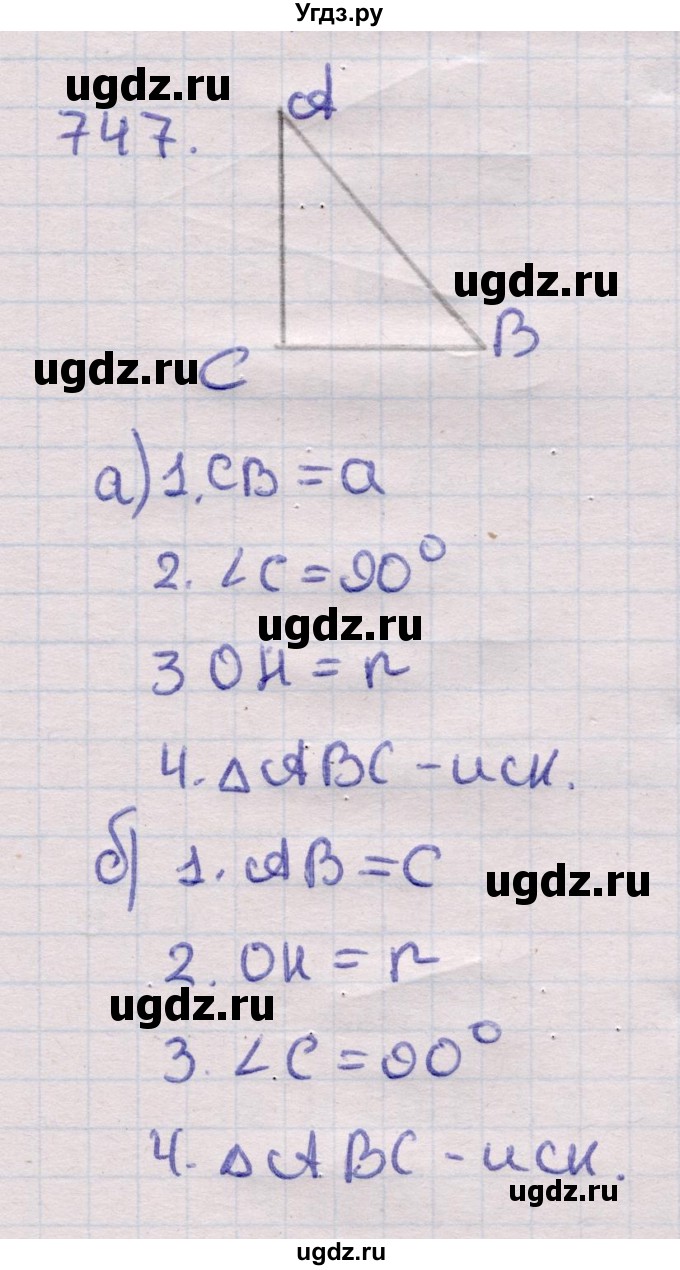 Угдз.ру
ugdz.ru
A
747.
ugdz.ru
B
ugdz.ru
C
а) 1. CB = a
2. ∠C = 90°
ugdz.ru
3 OH = r
4. △ABC - иск.
б) 1. AB = c
ugdz.ru
2. OH = r
ugdz.ru
3. ∠C = 90°
4. △ABC - иск.
ugdz.ru
ugdz.ru